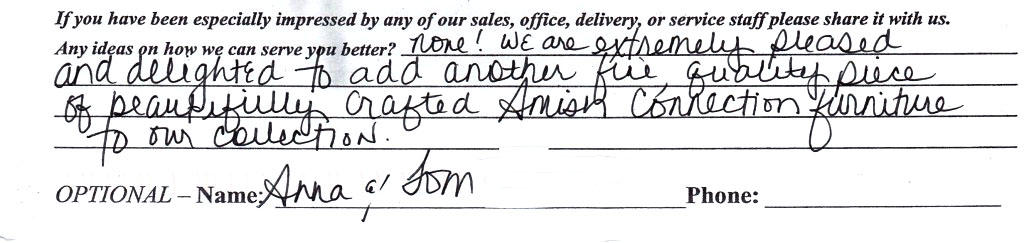 If you have been especially impressed by any of our sales, office, delivery, or service staff please share it with us.
Any ideas on how we can serve you better? None! WE are extremely pleased
and delighted to add another fine quality piece
of beautifully crafted Amish Connection furniture
to our collection.
OPTIONAL – Name: Anna & Tom Phone: